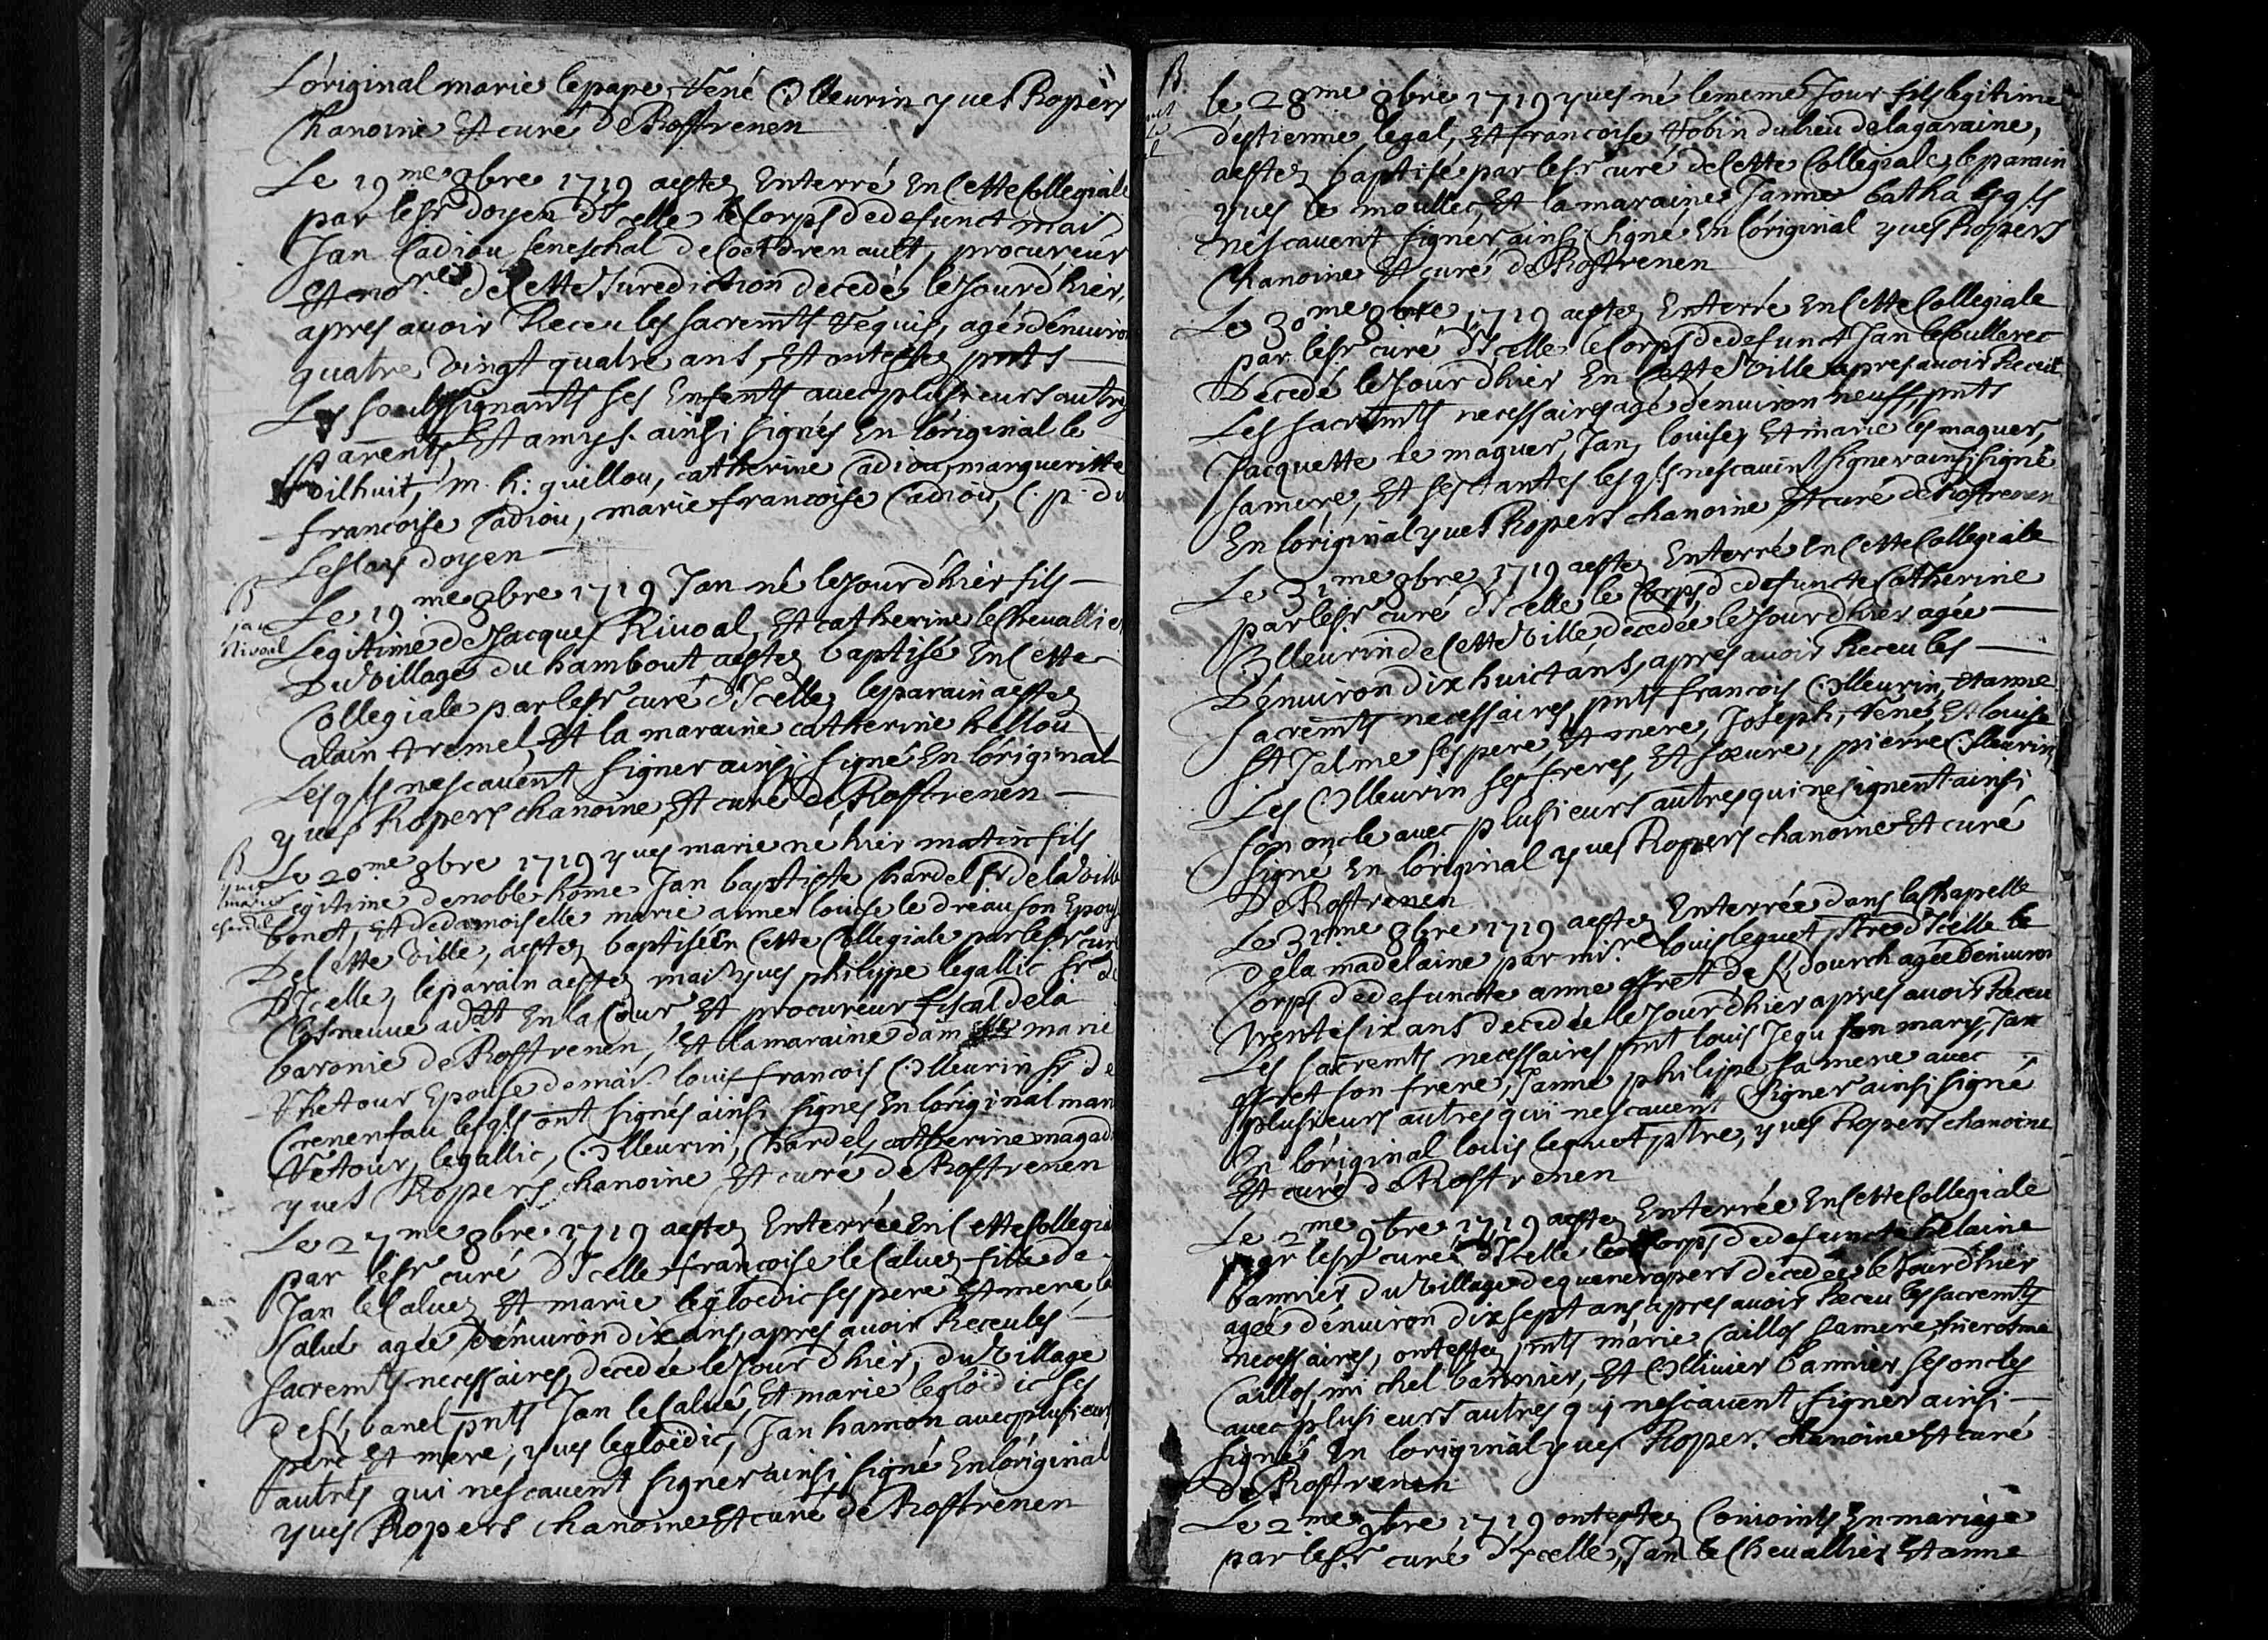 L'original marie le pape, René Olleurin yues Ropers
Chanoine Et curé de Rostrenen
Le 19me 8bre 1719 aesté Enterré En Cette Collegiale
par le Sr doyen d'Icelle le Corps de defunct mais
Jan Cadiou seneschal de Coetdrenault, procureur
Et no.res de Cette Jurediction decedé le Jour d'hier,
apres auoir Receu les sacremts Requis, agé d'enuiron
quatre vingt quatre ans, Et ont estez pnts
Les soubssignants ses Enfents auec plusieurs autres
parents Et amys. ainsi signés En l'original le
dilhuit, m. h. guillou, catherine Cadiou, margueritte
francoise Cadiou, marie francoise Cadiou, C. p. du
Leslay doyen
B
jan
Rivoal
Le 19me 8bre 1719 Jan né le Jour d'hier fils
Legitime de Jacques Riuoal, Et catherine le Cheuallier
Du village du hambout aesté baptisé En Cette
Collegiale par le Sr curé d'Icelle, le parain aesté
alain tremel, Et la maraine catherine hellou
Les qls nescauent signer ainsi signé En l'original
yues Ropers chanoine, Et curé de Rostrenen
B
yues
marie
chardel
Le 20me 8bre 1719 yues marie né hier matin fils
Legitime de noble home Jan baptiste Chardel Sr de la ville
bonet, Et de damoiselle marie anne louise le dreau son Epouse
De Cette ville, aesté baptisé En Cette Collegiale par le Sr curé
D'Icelle, le parain aesté mais yues philippe le gallic Sr de
Closneuue adat En la Cour Et procureur fiscal de la
baronie de Rostrenen, Et la maraine dam marie
Rhetour Epouse de mais. louis francois Olleurin Sr de
Crenenfau les qls ont signés ainsi signes En l'original marie
Retour, le gallic, Olleurin, Chardel, catherine magad
yues Ropers chanoine Et curé de Rostrenen
Le 27me 8bre 1719 aesté Enterrée En Cette Collegiale
par le Sr curé d'Icelle francoise le Caluez fille de
Jan le Caluez Et marie le gloedic ses pere Et mere, le
Calué agée d'enuiron dix ans, apres auoir Receu les
sacremts necessaires, decedée le Jour d'hier, du village
de K, banel pnts Jan le Calué, Et marie le gloëdic ses
pere Et mere, yues le gloëdic, Jan hamon auec plusieurs
autres qui nescauent signer ainsi signé En l'original
yues Ropers chanoine Et curé de Rostrenen
B.
le 28me 8bre 1719 yues né le meme Jour fils legitime
d'estienne legal, Et francoise tobin du lieu de la garaine,
aesté baptisé par le Sr curé de Cette Collegiale, le parain
yues le moullec, Et la maraine Janne batha les qls
nescauent signer ainsi signé En l'original yues Ropers
Chanoine Et curé de Rostrenen
Le 30me 8bre 1719 aesté Enterré En Cette Collegiale
par le Sr curé d'Icelle le Corps de defunct Jan le Cullerec
Decedé le Jour d'hier En Cette ville apres auoir Receu
Les sacremts necessaires agé d'enuiron neuff, pnts
Jacquette le maguer, Jan, louise, Et marie les maguer,
sa mere, Et ses tantes les qls nescauent signer ainsi signé
En l'original yues Ropers chanoine Et curé de Rostrenen
Le 31me 8bre 1719 aesté Enterré En Cette Collegiale
par le Sr curé d'Icelle le Corps de defuncte Catherine
Ollleurin de Cette ville decedée le Jour d'hier agée
D'enuiron dix huict ans, apres auoir Receu les
sacremts necessaires, pnts francois Ollleurin, Et anne
St Jalme ses pere, Et mere, Joseph, René, Et louise
Les Ollleurin ses freres, Et soeure, pierre Ollleurin
son oncle auec plusieurs autres qui ne signent ainsi
signé En l'original yues Ropers chanoine Et curé
De Rostrenen
Le 31me 8bre 1719 aesté Enterrée dans la Chapelle
de la madelaine par mi.re louis leguet ptre d'Icelle le
Corps de defuncte anne offret de K, dourch agée D'enuiron
trente six ans decedée le Jour d'hier apres auoir Receu
Les sacremts necessaires pnt louis Jegu son mary, Jan
offret son frere, Janne philippe sa mere auec
plusieurs autres qui nescauent signer ainsi signé
En l'original louis leguet ptre, yues Ropers chanoine
Et curé de Rostrenen
Le 2me 9bre 1719 aesté Enterrée En Cette Collegiale
par le Sr curé d'Icelle le Corps de defuncte helaine
bannier du village de queneropers decedée le Jour d'hier
agée d'enuiron dix sept ans apres auoir Receu les sacremts
necessaires, ont estez pnts marie Caillos sa mere, hierosme
Caillos, michel bannier, Et Ollivier bannier ses oncles
auec plusieurs autres qui nescauent signer ainsi
signé En l'original yues Roper. chanoine Et curé
de Rostrenen
Le 2me 9bre 1719 ont estez Conioints En mariage
par le Sr curé d'ycelle, Jan le Cheuallier Et anne